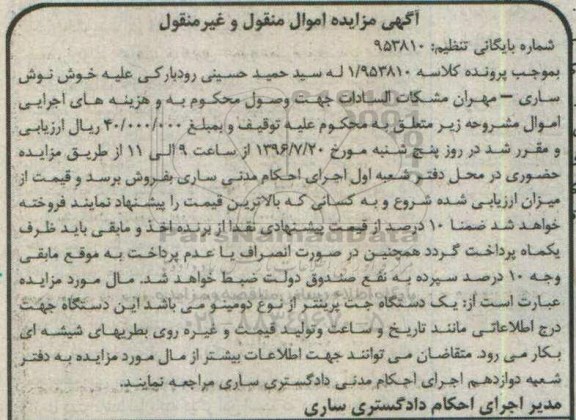 آگهی مزایده اموال منقول و غیرمنقول
شماره بایگانی تنظیم: ۹۵۳۸۱۰
بموجب پرونده کلاسه ۱/۹۵۳۸۱۰ له سید حمید حسینی رودبارکی علیه خوش نوش
ساری – مهران مشکات السادات جهت وصول محکوم به و هزینه های اجرایی
اموال مشروحه زیر متعلق به محکوم علیه توقیف و بمبلغ ۴۰/۰۰۰/۰۰۰ ریال ارزیابی
و مقرر شد در روز پنج شنبه مورخ ۱۳۹۶/۷/۲۰ از ساعت ۹ الی ۱۱ از طریق مزایده
حضوری در محل دفتر شعبه اول اجرای احکام مدنی ساری بفروش برسد و قیمت از
میزان ارزیابی شده شروع و به کسانی که بالاترین قیمت را پیشنهاد نمایند فروخته
خواهد شد ضمنا ۱۰ درصد از قیمت پیشنهادی نقدا از برنده اخذ و مابقی باید ظرف
یکماه پرداخت گردد همچنین در صورت انصراف یا عدم پرداخت به موقع مابقی
وجه ۱۰ درصد سپرده به نفع صندوق دولت ضبط خواهد شد. مال مورد مزایده
عبارت است از: یک دستگاه جت پرینتر از نوع دومینو می باشد این دستگاه جهت
درج اطلاعاتی مانند تاریخ و ساعت وتولید قیمت و غیره روی بطریهای شیشه ای
بکار می رود. متقاضان می توانند جهت اطلاعات بیشتر از مال مورد مزایده به دفتر
شعبه دوازدهم اجرای احکام مدنی دادگستری ساری مراجعه نمایند.
مدیر اجرای احکام دادگستری ساری
ParsNamadData